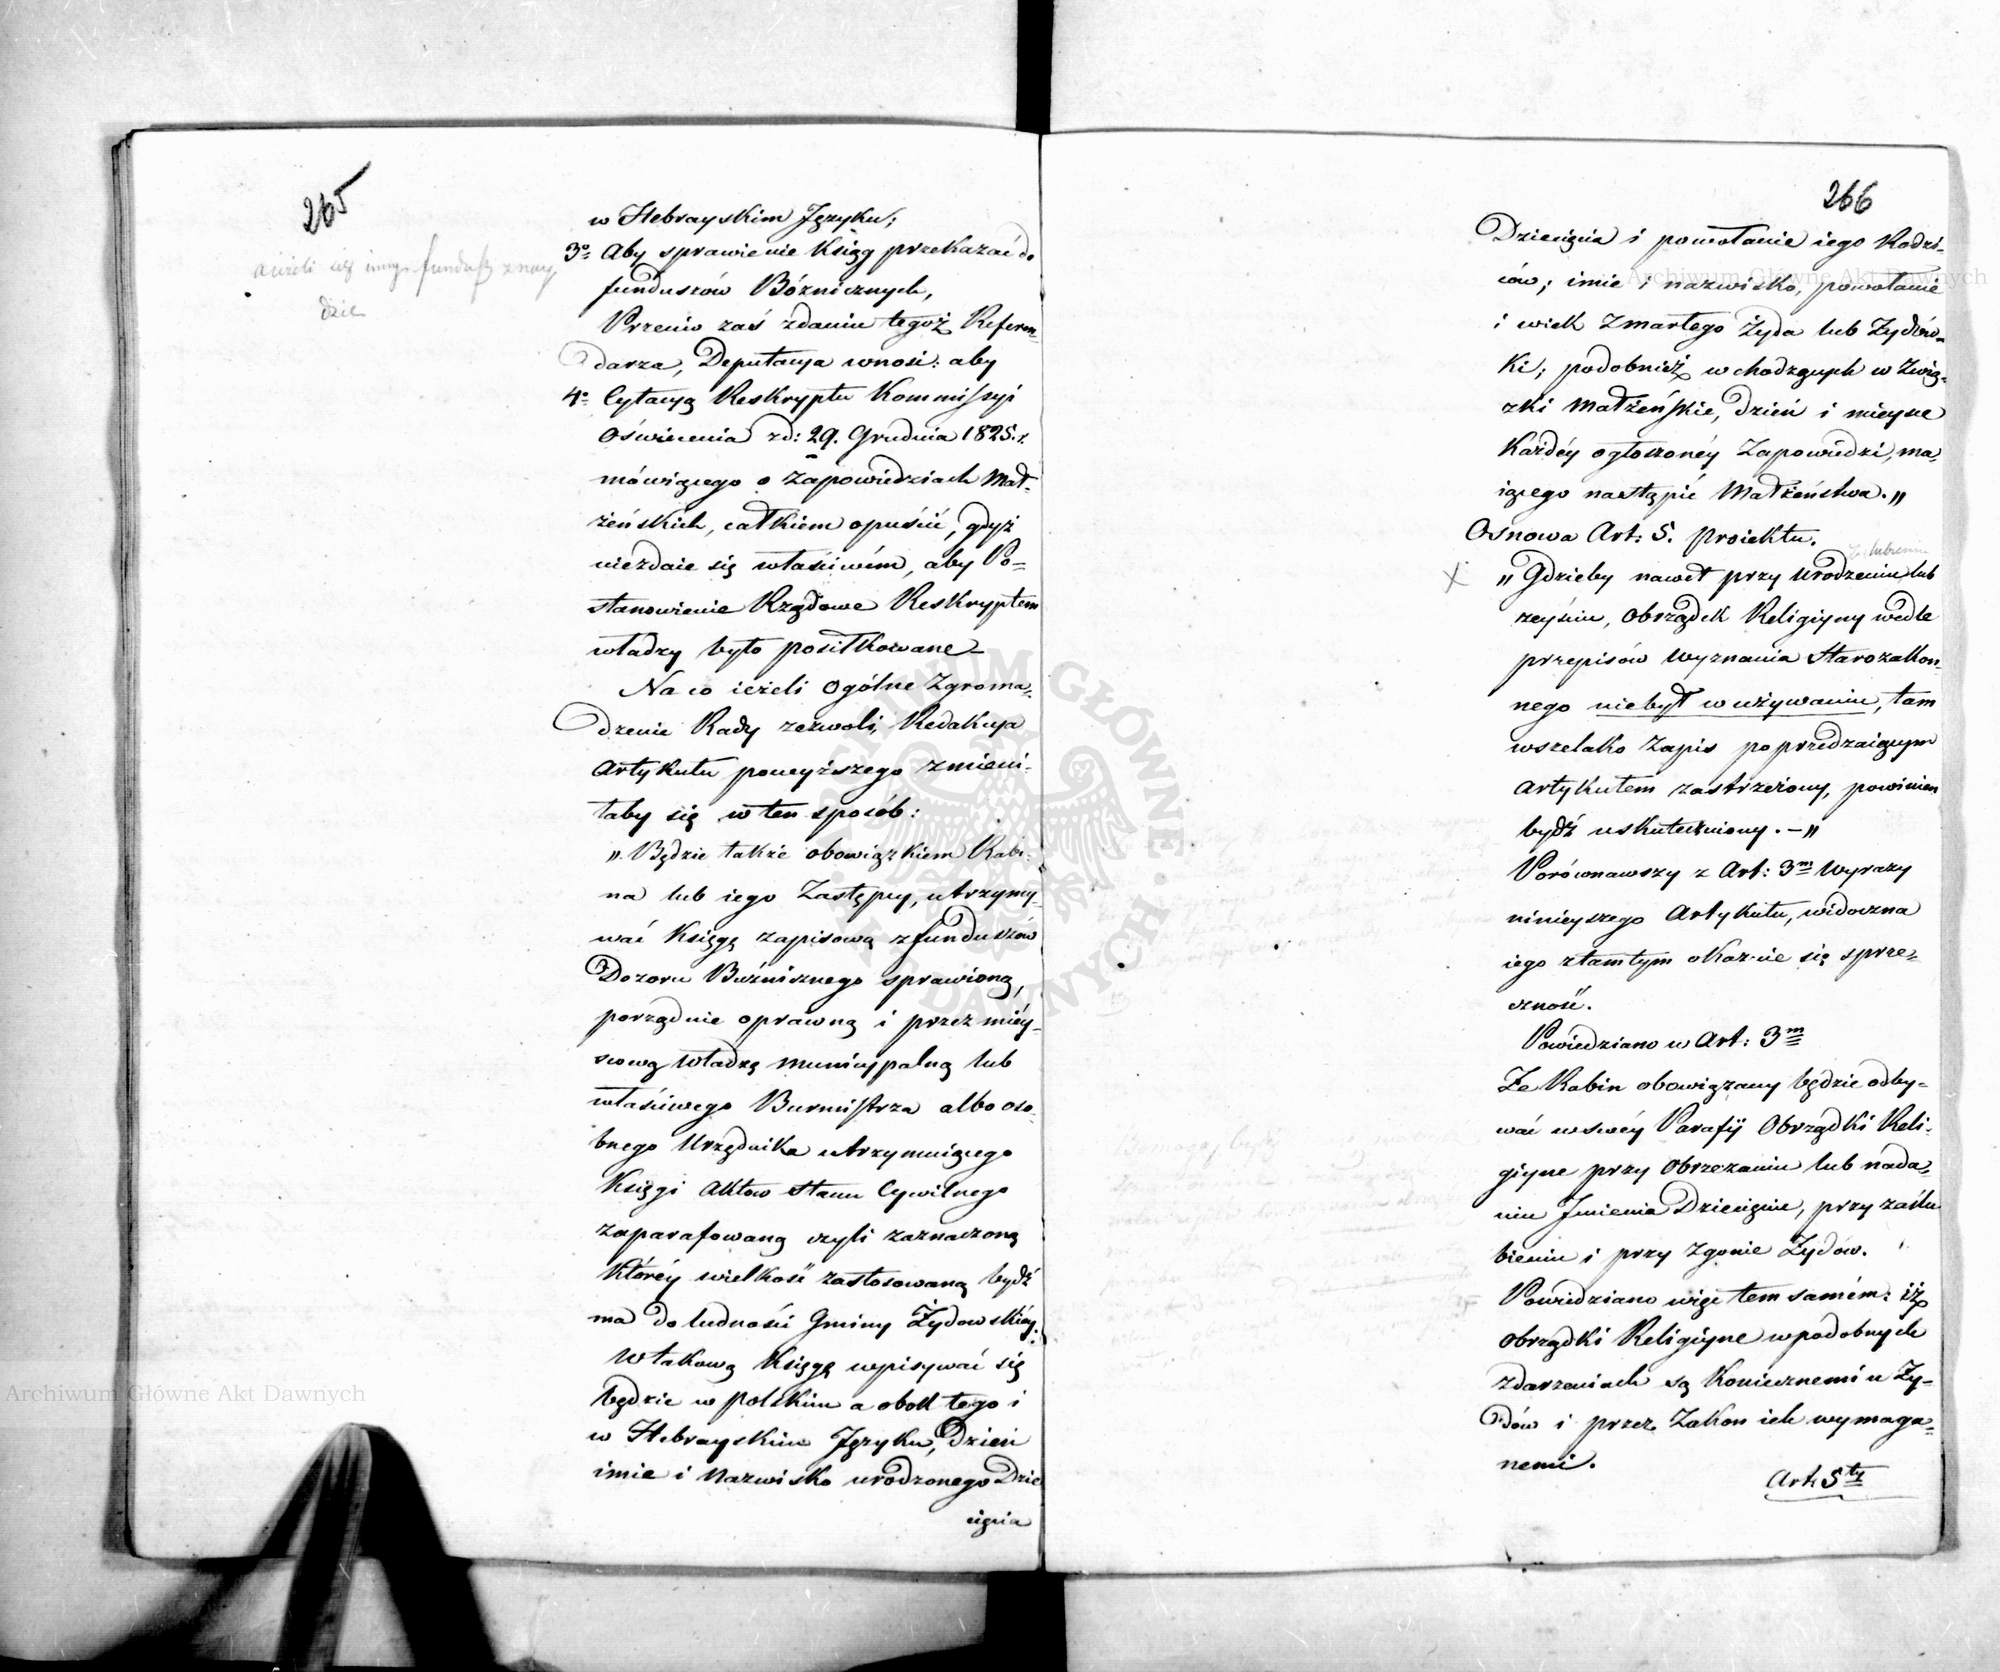 265
ieżeli się inny fundusz znay
dzie
w Hebrayskim Języku;
3o Aby sprawienie Ksiąg przekazać do
funduszów Bóżnicznych,
Przeciw zaś zdaniu tegoż Referen-
darza, Deputacya wnosi: aby
4o Cytacyą Reskryptu Kommissyi
Oświecenia zd: 29. Grudnia 1825. r.
mówiącego o Zapowiedziach Mał-
żeńskich, całkiem opuścić, gdyż
niezdaie się właściwém, aby Po-
stanowienie Rządowe Reskryptem
władzy było posiłkowane _
Na co ieżeli Ogólne Zgroma-
dzenie Rady zezwoli, Redakcya
Artykułu powyższego zmieni-
łaby się w ten sposób:
„Będzie także obowiązkiem Rabi-
na lub iego Zastępcy, utrzymy-
wać Księgę zapisową z funduszów
Dozoru Bużnicznego sprawioną,
porządnie oprawną i przez miéy-
scową Władzę municypalną lub
właściwego Burmistrza albo oso-
bnego Urzędnika utrzymuiącego
Księgi Aktow Stanu Cywilnego
zaparafowaną czyli zaznaczoną
któréy wielkość zastosowaną bydź
ma do ludności Gminy Żydowskiéy:
W takową Księgę wpisywać się
będzie w polskim a obok tego i
w Hebrayskim Języku, Dzień
imie i Nazwisko urodzonego Dzie
cięcia
266
Dziecięcia i powołanie iego Rodzi-
ców; imie i nazwisko, powołanie
i wiek Zmarłego Żyda lub Żydów-
ki; podobnież wchodzących w Zwią-
zki Małżeńskie, dzień i mieysce
Każdéy ogłoszonéy Zapowiedzi, ma-
iącego nastąpić Małżeństwa.„
Osnowa Art: 5. Proiektu.
„Gdzieby nawet przy Urodzeniu lub
zeyściu, Obrządek Religiyny wedle
przepisów Wyznania Starozakon-
nego niebył w używaniu, tam
wszelako Zapis poprzedzaiącym
Artykułem zastrzeżony, powinien
bydź uskuteczniony.-„
Porównawszy z Art: 3m Wyrazy
ninieyszego Artykułu, widoczna
iego z tamtym okazuie się sprze-
czność.
Powiedziano w Art: 3m
Że Rabin obowiązany będzie odby-
wać w swéy Parafii Obrządki Reli-
giyne przy Obrzezaniu lub nada-
niu Imienia Dziecięciu, przy zaślu
bieniu i przy Zgonie Żydów.
Powiedziano więc tem samém: iż
Obrządki Religiyne w podobnych
zdarzeniach są Koniecznemi u Ży-
dów i przez Zakon ich wymaga-
nemi.
Art: 5ty
Archiwum Główne Akt Dawnych
Archiwum Główne Akt Dawnych
ARCHIWUM GŁÓWNE AKT DAWNYCH